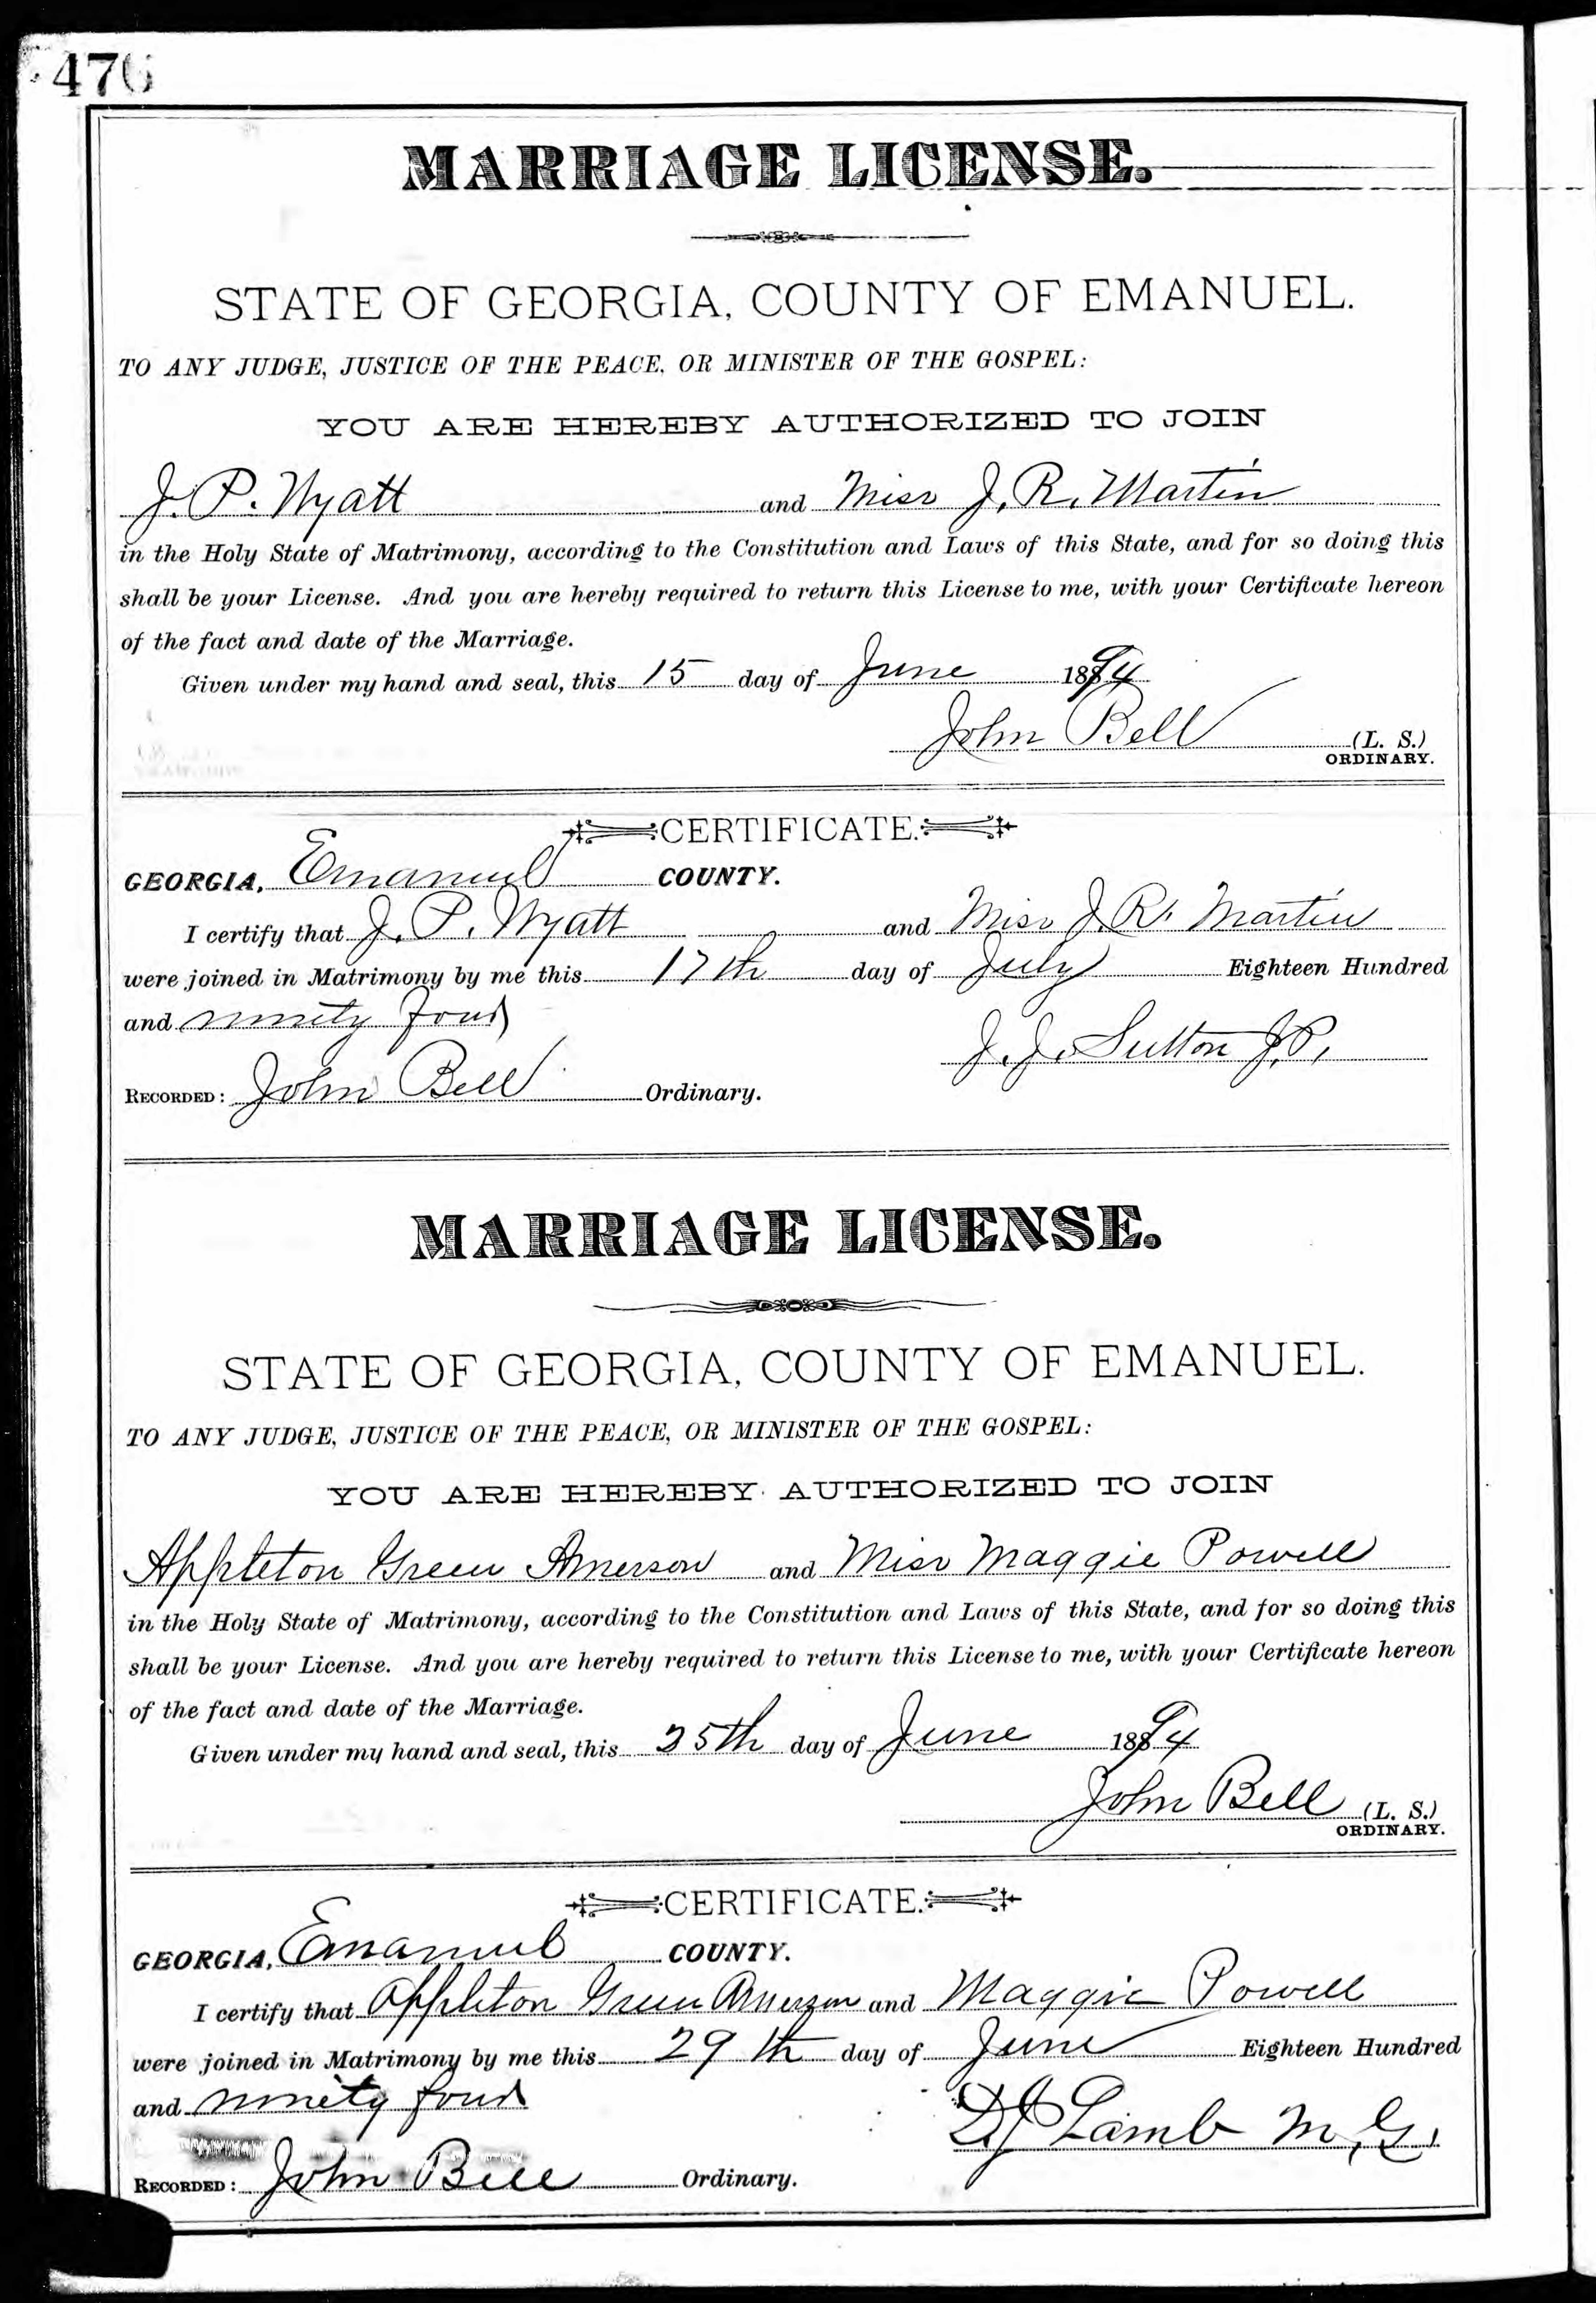 476
MARRIAGE LICENSE.
STATE OF GEORGIA, COUNTY OF EMANUEL.
TO ANY JUDGE, JUSTICE OF THE PEACE, OR MINISTER OF THE GOSPEL:
YOU ARE HEREBY AUTHORIZED TO JOIN
J. P. Wyatt and Miss J. R. Martin
in the Holy State of Matrimony, according to the Constitution and Laws of this State, and for so doing this
shall be your License. And you are hereby required to return this License to me, with your Certificate hereon
of the fact and date of the Marriage.
Given under my hand and seal, this 15 day of June 1894
John Bell (L. S.)
ORDINARY.
CERTIFICATE.
GEORGIA, Emanuel COUNTY.
I certify that J. P. Wyatt and Miss J. R. Martin
were joined in Matrimony by me this 17th day of July Eighteen Hundred
and ninety four
J. J. Sutton J.P.
RECORDED: John Bell Ordinary.
MARRIAGE LICENSE.
STATE OF GEORGIA, COUNTY OF EMANUEL.
TO ANY JUDGE, JUSTICE OF THE PEACE, OR MINISTER OF THE GOSPEL:
YOU ARE HEREBY AUTHORIZED TO JOIN
Appleton Green Amerson and Miss Maggie Powell
in the Holy State of Matrimony, according to the Constitution and Laws of this State, and for so doing this
shall be your License. And you are hereby required to return this License to me, with your Certificate hereon
of the fact and date of the Marriage.
Given under my hand and seal, this 25th day of June 1894
John Bell (L. S.)
ORDINARY.
CERTIFICATE.
GEORGIA, Emanuel COUNTY.
I certify that Appleton Green Amerson and Maggie Powell
were joined in Matrimony by me this 29th day of June Eighteen Hundred
and ninety four
DJ Lamb M.G.
RECORDED: John Bell Ordinary.